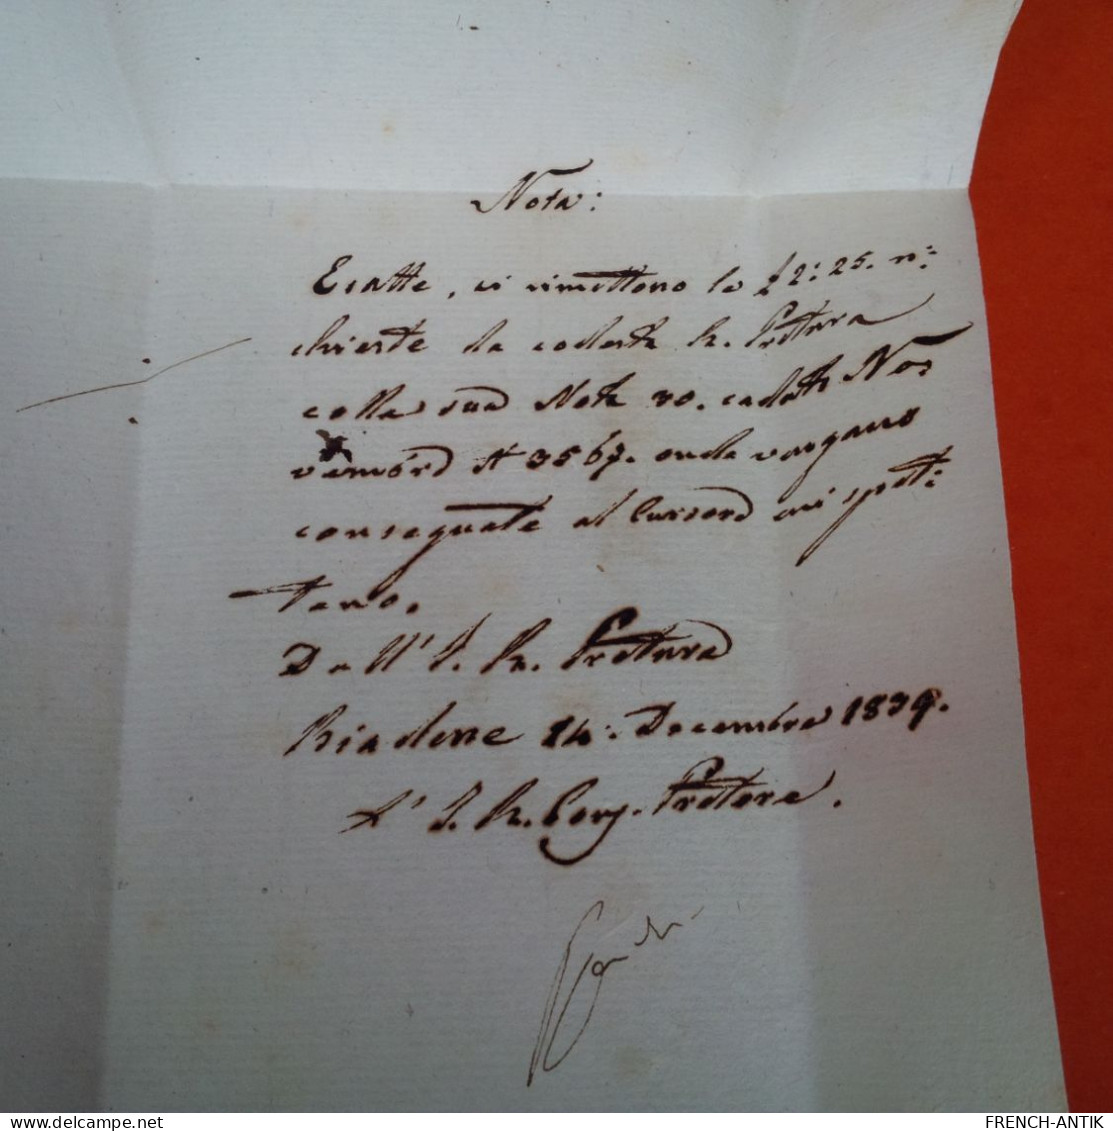 Nota:
Esatte, si rimettono le £ 2: 25. ri:
chieste da codesta R. Pretura
colla sua Nota 30. cadte No:
vembre N 3567. onde vengano
consegnate al Cursore cui spet:
tano.
Dall' I. R. Pretura
Biadene 14. Decembre 1839.
L' I. R. Cons. Pretore.
FRENCH-ANTIK